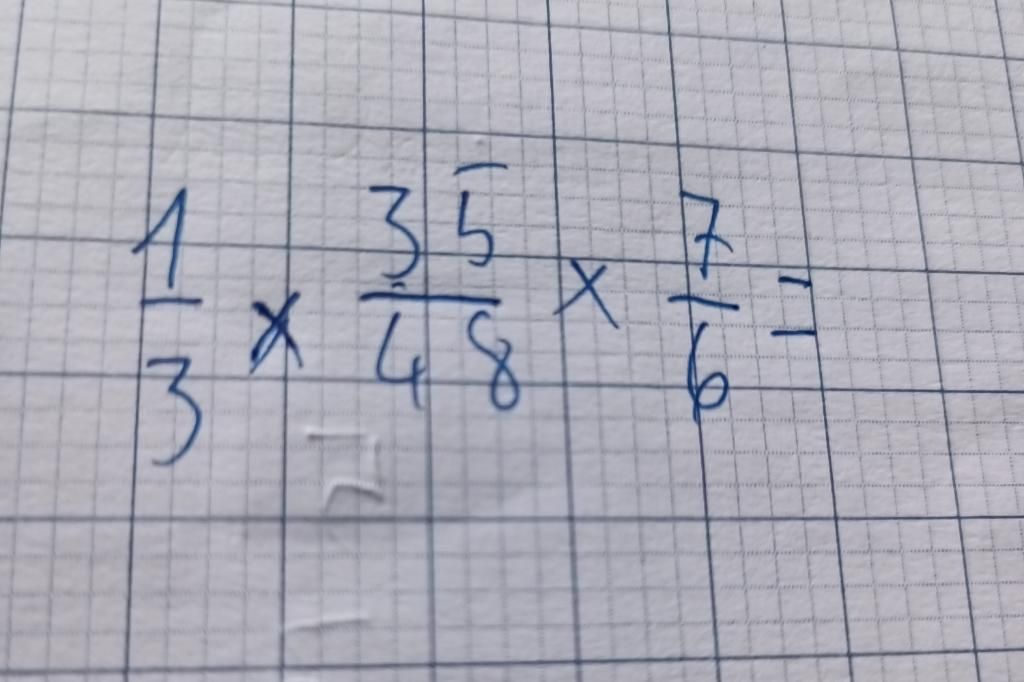 1/3 x 35/48 x 7/6 =